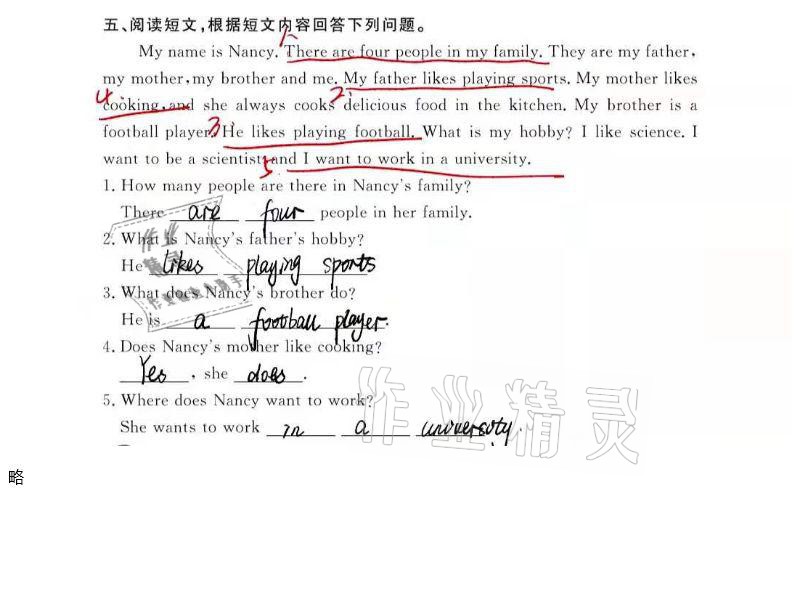 五、阅读短文,根据短文内容回答下列问题。
1.
My name is Nancy. There are four people in my family. They are my father,
my mother, my brother and me. My father likes playing sports. My mother likes
4. 2.
cooking, and she always cooks delicious food in the kitchen. My brother is a
football player. 3. He likes playing football. What is my hobby? I like science. I
want to be a scientist, and I want to work in a university.
5
1. How many people are there in Nancy's family?
There are four people in her family.
2. What is Nancy's father's hobby?
He likes playing sports
3. What does Nancy's brother do?
He is a football player.
4. Does Nancy's mother like cooking?
Yes, she does.
5. Where does Nancy want to work?
She wants to work in a university.
作业精灵
略